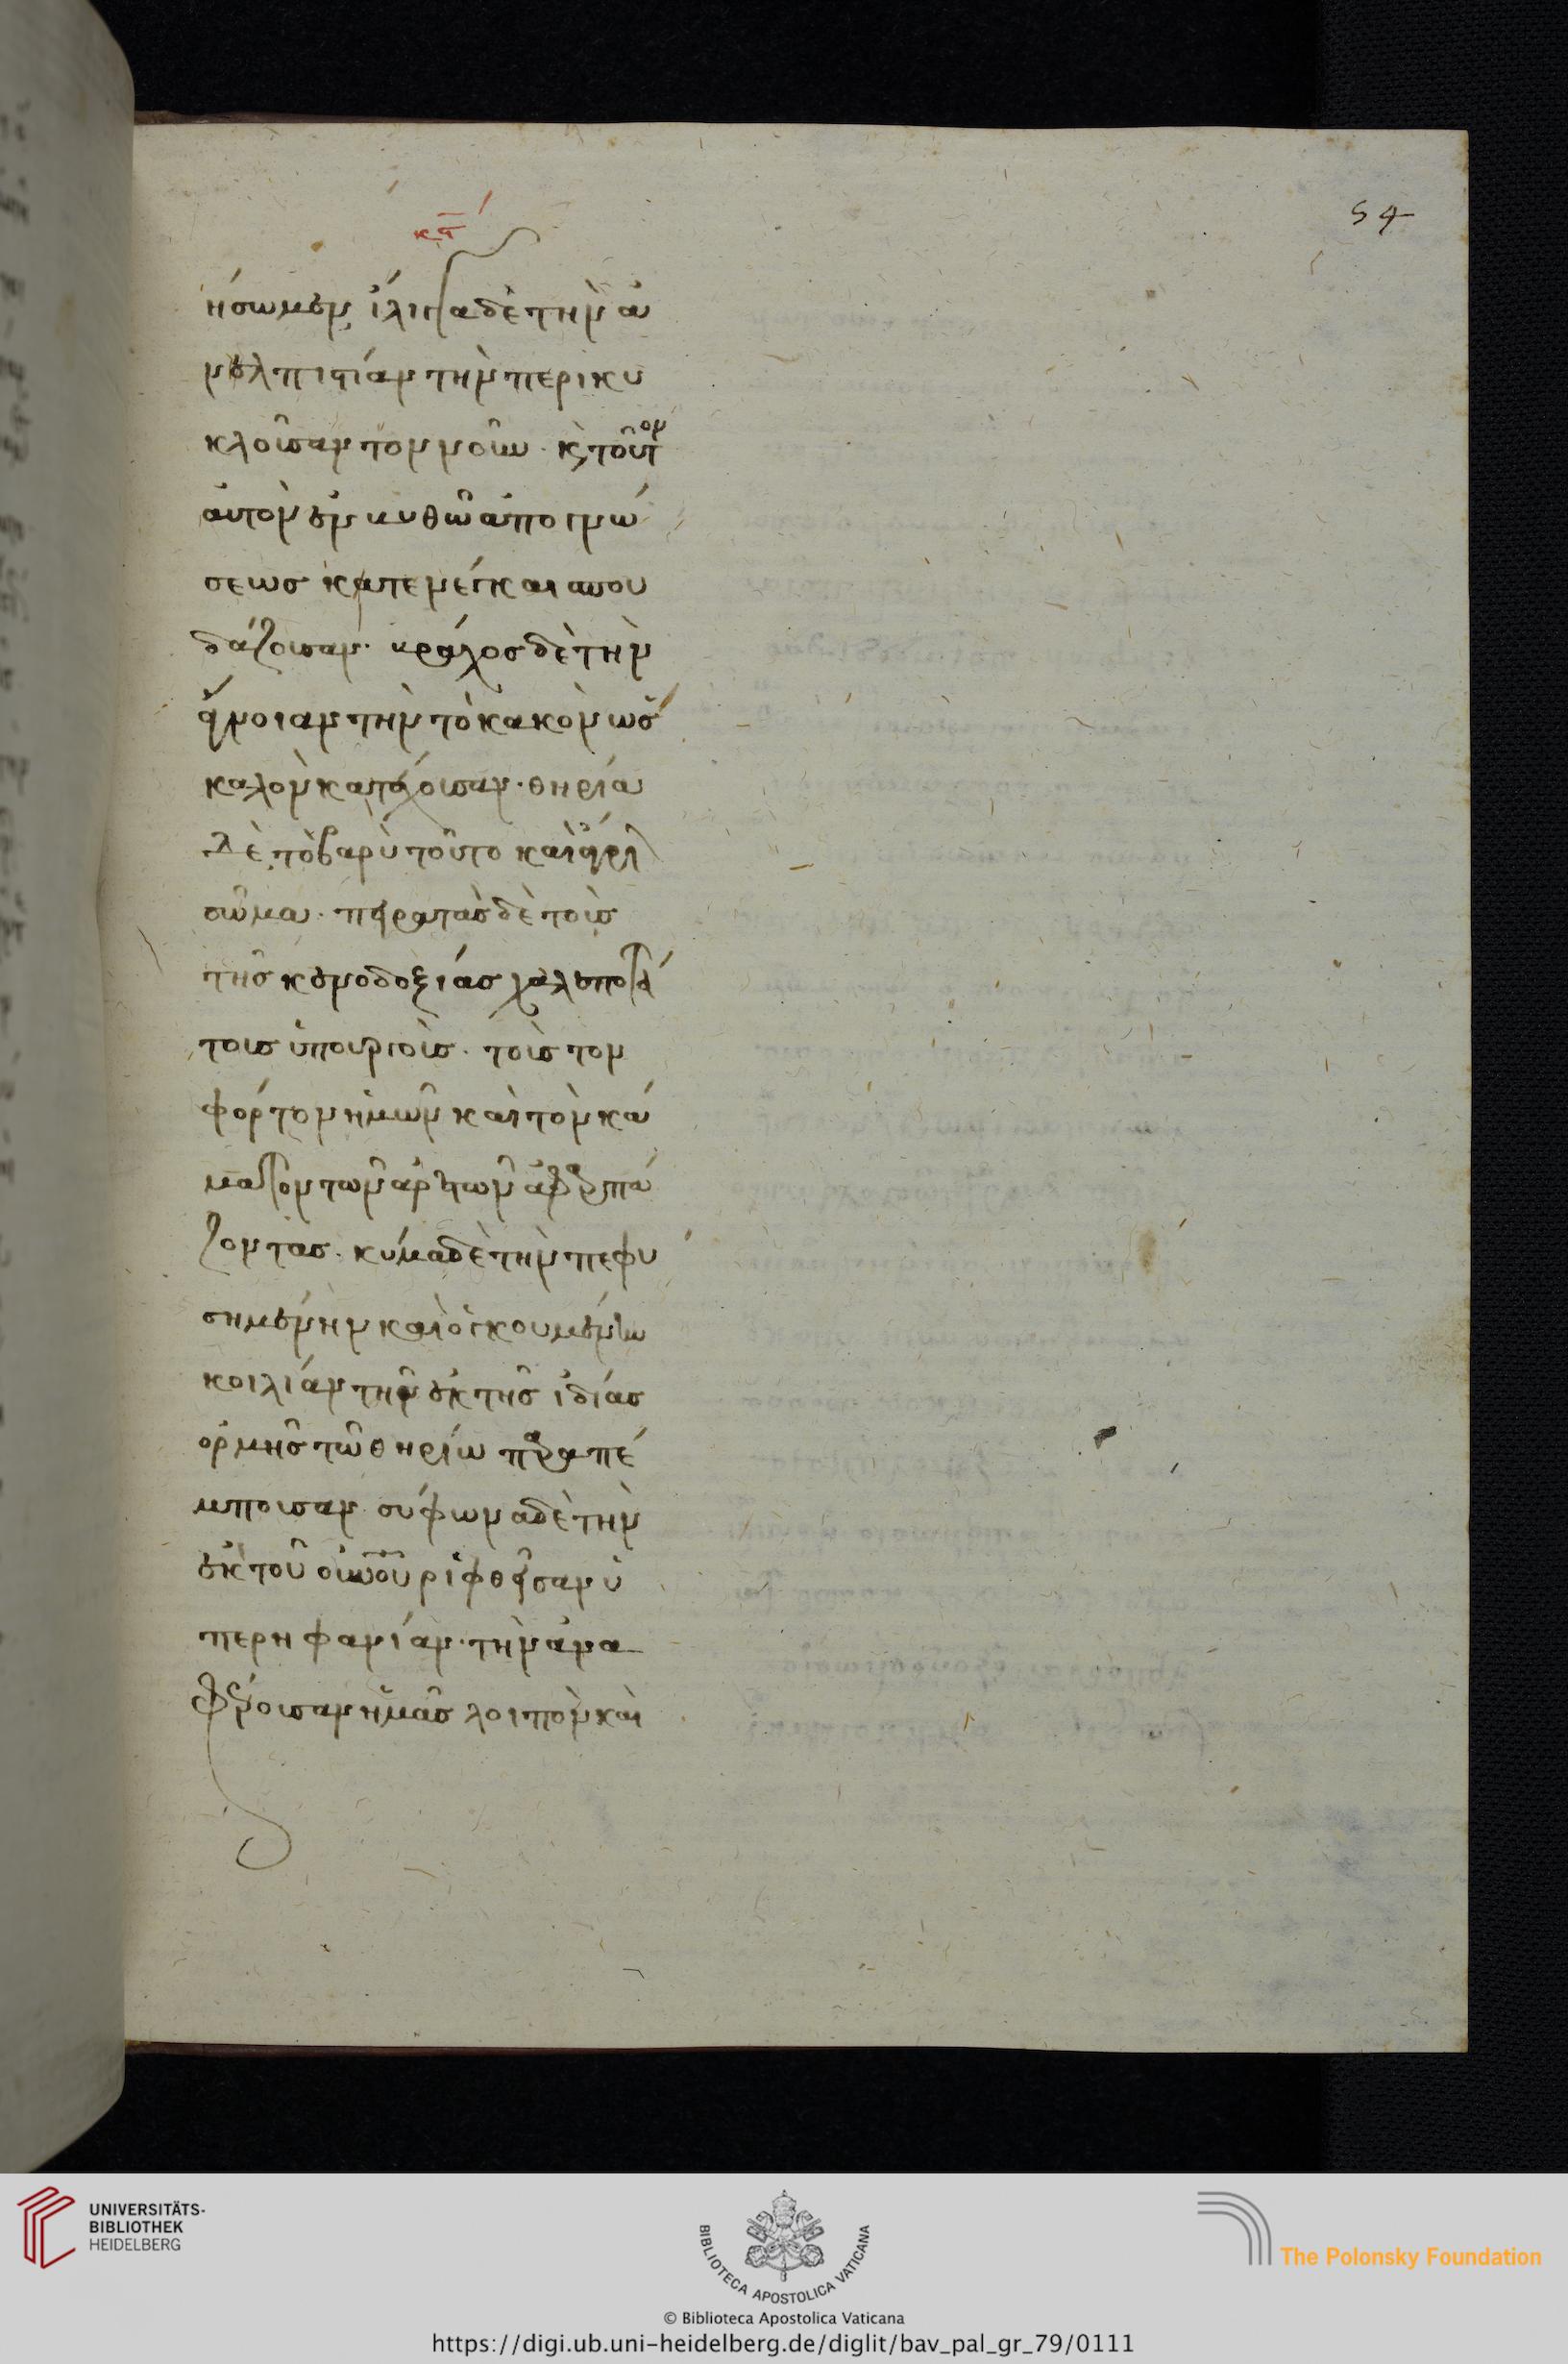 54
κδ
ήσωμεν, ἴλιγγα δὲ τὴν ἀ
νελπιστίαν τὴν περικυ
κλοῦσαν τὸν νοῦν. κ τοῦτον
αὐτὸν ἐν βυθῶ ἀπογνώ
σεως καπενέγκαι σπου
δάζουσαν. βράχος δὲ τὴν
ἄγνοιαν τὴν τὸ κακὸν ὡς
καλὸν κατέχουσαν. θηρία
δὲ τὸ βαρὺ τοῦτο καὶ ἄγριον
σῶμα. πειρατὰς δὲ τοὺς
τῆς κενοδοξίας χαλεπωτά
τους ὑπουργοὺς. τοὺς τὸν
φόρτον ἡμῶν καὶ τὸν κά
ματον τῶν ἀρετῶν ἀφαρπά
ζοντας. κύμα δὲ τὴν πεφυ
σημένην καὶ ὀγκουμένην
κοιλίαν τὴν ἐκ τῆς ἰδίας
ὁρμῆς τῶ θηρίω παραπέ
μπουσαν. σύφωνα δὲ τὴν
ἐκ τοῦ οὐνοῦ ριφθεῖσαν ὑ
περηφανίαν. τὴν ἀνα
φέρουσαν ἡμᾶς λοιπὸν καὶ
UNIVERSITÄTS-
BIBLIOTHEK
HEIDELBERG
BIBLIOTECA APOSTOLICA VATICANA
The Polonsky Foundation
© Biblioteca Apostolica Vaticana
https://digi.ub.uni-heidelberg.de/diglit/bav_pal_gr_79/0111